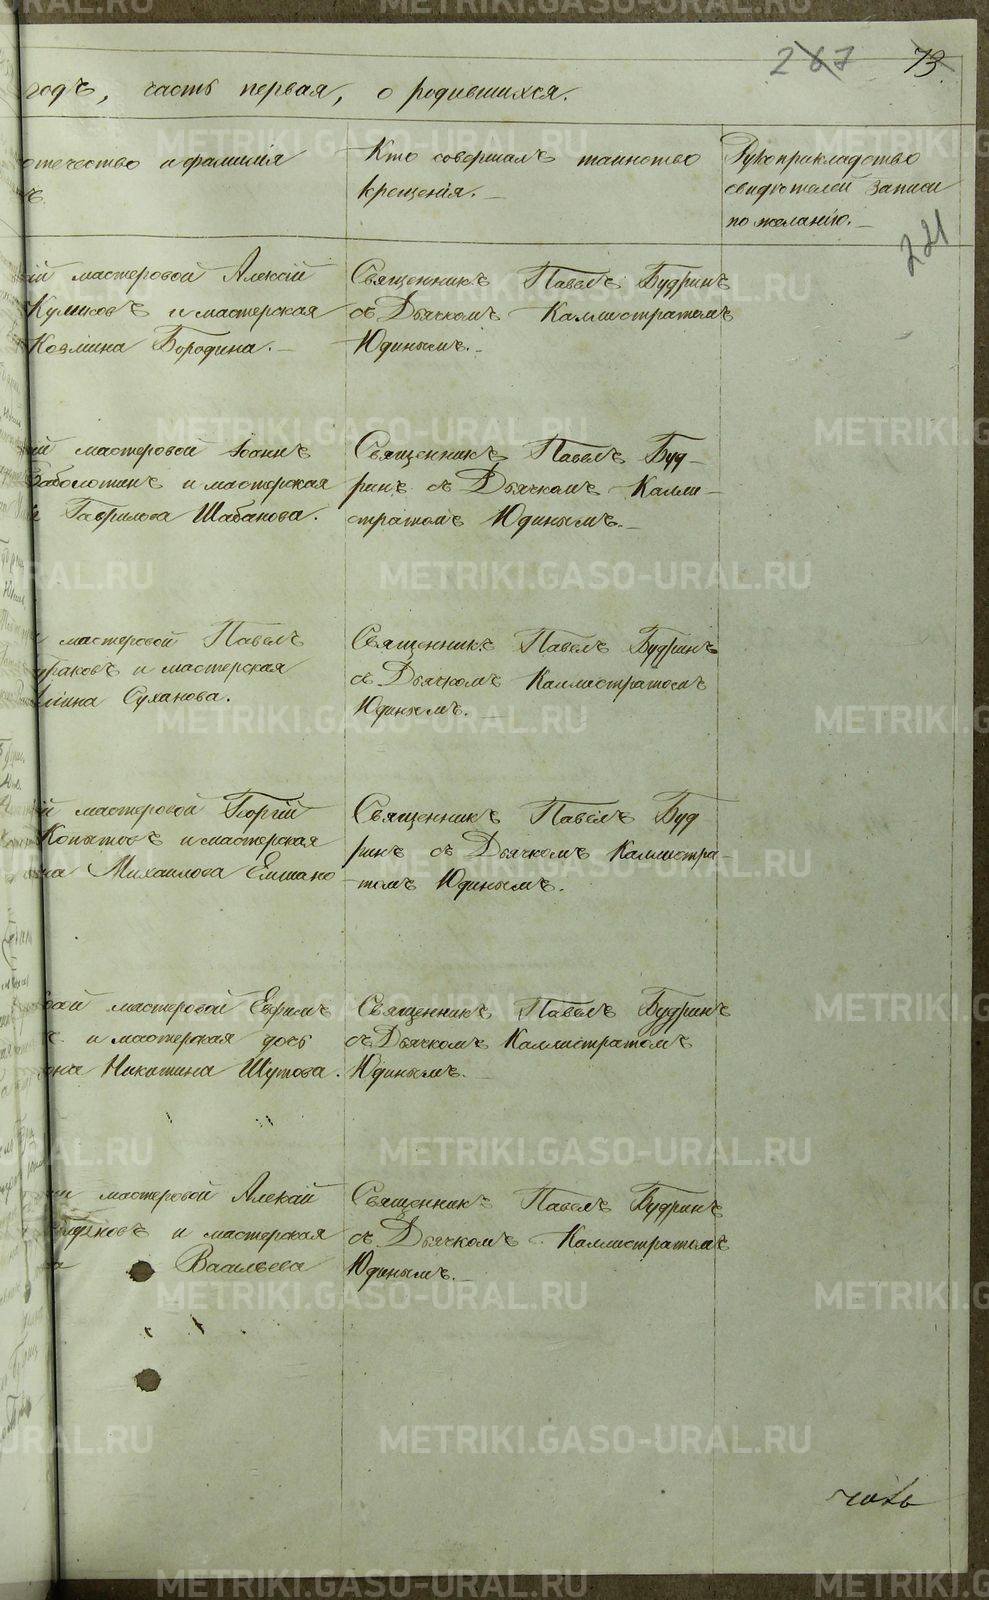 267 73
годъ, часть первая, о родившихся.
отечество и фамилія
ъ.
Кто совершалъ таинство
крещенія.
Рукоприкладство
свидѣтелей записи
по желанію.
221
ій мастеровой Алексій
Куликовъ и мастерская
Козмина Бородина.
Священникъ Павелъ Будринъ
съ Дьячкомъ Каллистратомъ
Юдинымъ.
ій мастеровой Іоаннъ
Заболотинъ и мастерская
Гаврилова Шабанова.
Священникъ Павелъ Буд-
ринъ съ Дьячкомъ Калли-
стратомъ Юдинымъ.
мастеровой Павелъ
раковъ и мастерская
мина Суханова.
Священникъ Павелъ Будринъ
съ Дьячкомъ Каллистратомъ
Юдинымъ.
ій мастеровой Георгій
Копытовъ и мастерская
на Михаилова Елшано
Священникъ Павелъ Буд
ринъ съ Дьячкомъ Каллистра-
томъ Юдинымъ.
мастеровой Ефримъ
ъ и мастерская дочь
Никитина Шутова.
Священникъ Павелъ Будринъ
съ Дьячкомъ Каллистратомъ
Юдинымъ.
мастеровой Алексій
новъ и мастерская
Васильева
Священникъ Павелъ Будринъ
съ Дьячкомъ Каллистратомъ
Юдинымъ.
METRIKI.GASO-URAL.RU